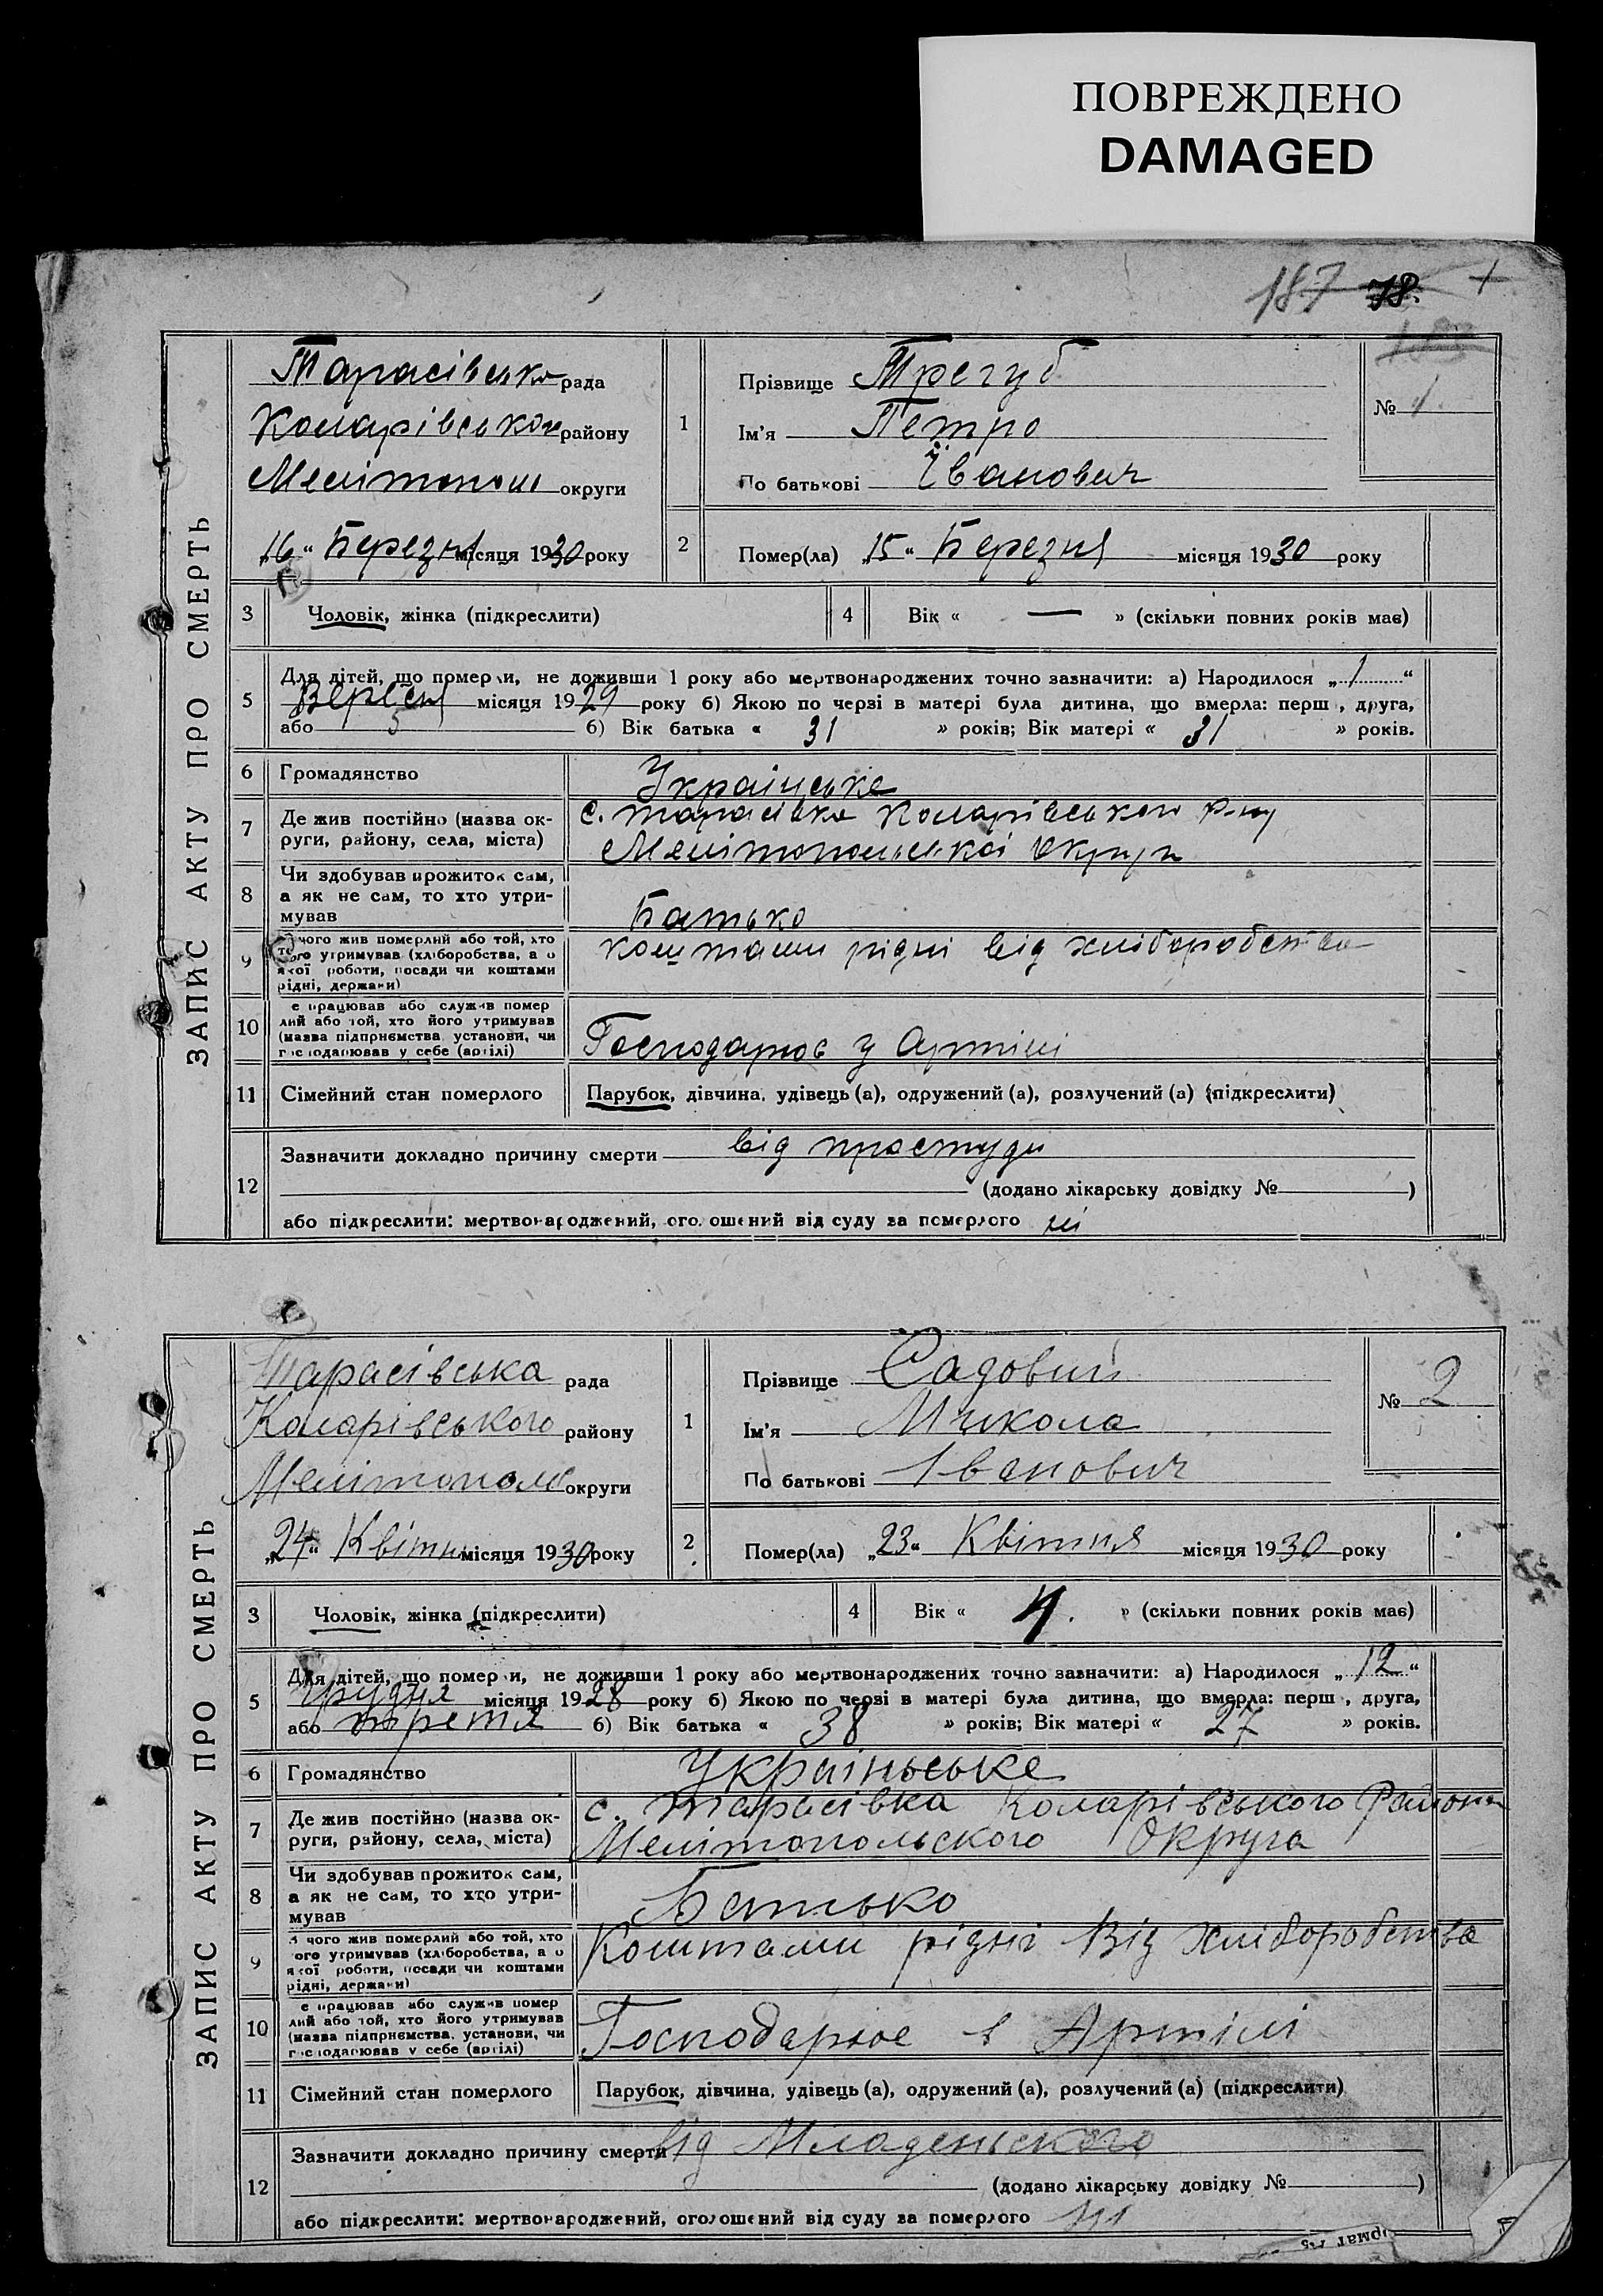 ПОВРЕЖДЕНО
DAMAGED
187 78. +
ЗАПИС АКТУ ПРО СМЕРТЬ
Тарасівська рада
Коларівського району
Мелітополь округи
„16“ Березня місяця 1930 року
1
Прізвище Трегуб
Ім’я Петро
По батькові Іванович
№ 1.
2
Помер(ла) „15“ Березня місяця 1930 року
3 Чоловік, жінка (підкреслити)
4 Вік « — » (скільки повних років має)
5 Для дітей, що померли, не доживши 1 року або мертвонароджених точно зазначити: а) Народилося „1“
Вересня місяця 1929 року б) Якою по черзі в матері була дитина, що вмерла: перш , друга,
або 5 б) Вік батька « 31 » років; Вік матері « 31 » років.
6 Громадянство Українське
7 Де жив постійно (назва ок-
руги, району, села, міста)
с. Тарасівка Коларівського р-ну
Мелітопольської Округи
8 Чи здобував прожиток сам,
а як не сам, то хто утри-
мував
Батько
9 чого жив померлий або той, хто
його утримував (хліборобства, а о
якої роботи, посади чи коштами
рідні, держави)
коштами рідні від хліборобства
10 е працював або служив помер
лий або той, хто його утримував
(назва підприємства, установи, чи
господарював у себе (артілі)
Господарює у Артілі
11 Сімейний стан померлого Парубок, дівчина, удівець (а), одружений (а), розлучений (а) (підкреслити)
12 Зазначити докладно причину смерти від простуди
(додано лікарську довідку № )
або підкреслити: мертвонароджений, оголошений від суду за померлого ні
ЗАПИС АКТУ ПРО СМЕРТЬ
Тарасівська рада
Коларівського району
Мелітополь округи
„24“ Квітня місяця 1930 року
1
Прізвище Садовий
Ім’я Микола
По батькові Іванович
№ 2
2
Помер(ла) „23“ Квітня місяця 1930 року
3 Чоловік, жінка (підкреслити)
4 Вік « » (скільки повних років має)
5 Для дітей, що померли, не доживши 1 року або мертвонароджених точно зазначити: а) Народилося „12“
Грудня місяця 1928 року б) Якою по черзі в матері була дитина, що вмерла: перш , друга,
або третя б) Вік батька « 38 » років; Вік матері « 27 » років.
6 Громадянство Україньське
7 Де жив постійно (назва ок-
руги, району, села, міста)
с. Тарасівка Коларівського Району
Мелітопольского Округа
8 Чи здобував прожиток сам,
а як не сам, то хто утри-
мував
Батько
9 чого жив померлий або той, хто
ого утримував (хліборобства, а о
якої роботи, посади чи коштами
рідні, держави)
Коштами рідні Від хліборобства
10 е працював або служив помер
лий або той, хто його утримував
(назва підприємства, установи, чи
господарював у себе (артілі)
Господарює в Артілі
11 Сімейний стан померлого Парубок, дівчина, удівець (а), одружений (а), розлучений (а) (підкреслити)
12 Зазначити докладно причину смерти від Младеньского
(додано лікарську довідку № )
або підкреслити: мертвонароджений, оголошений від суду за померлого ні